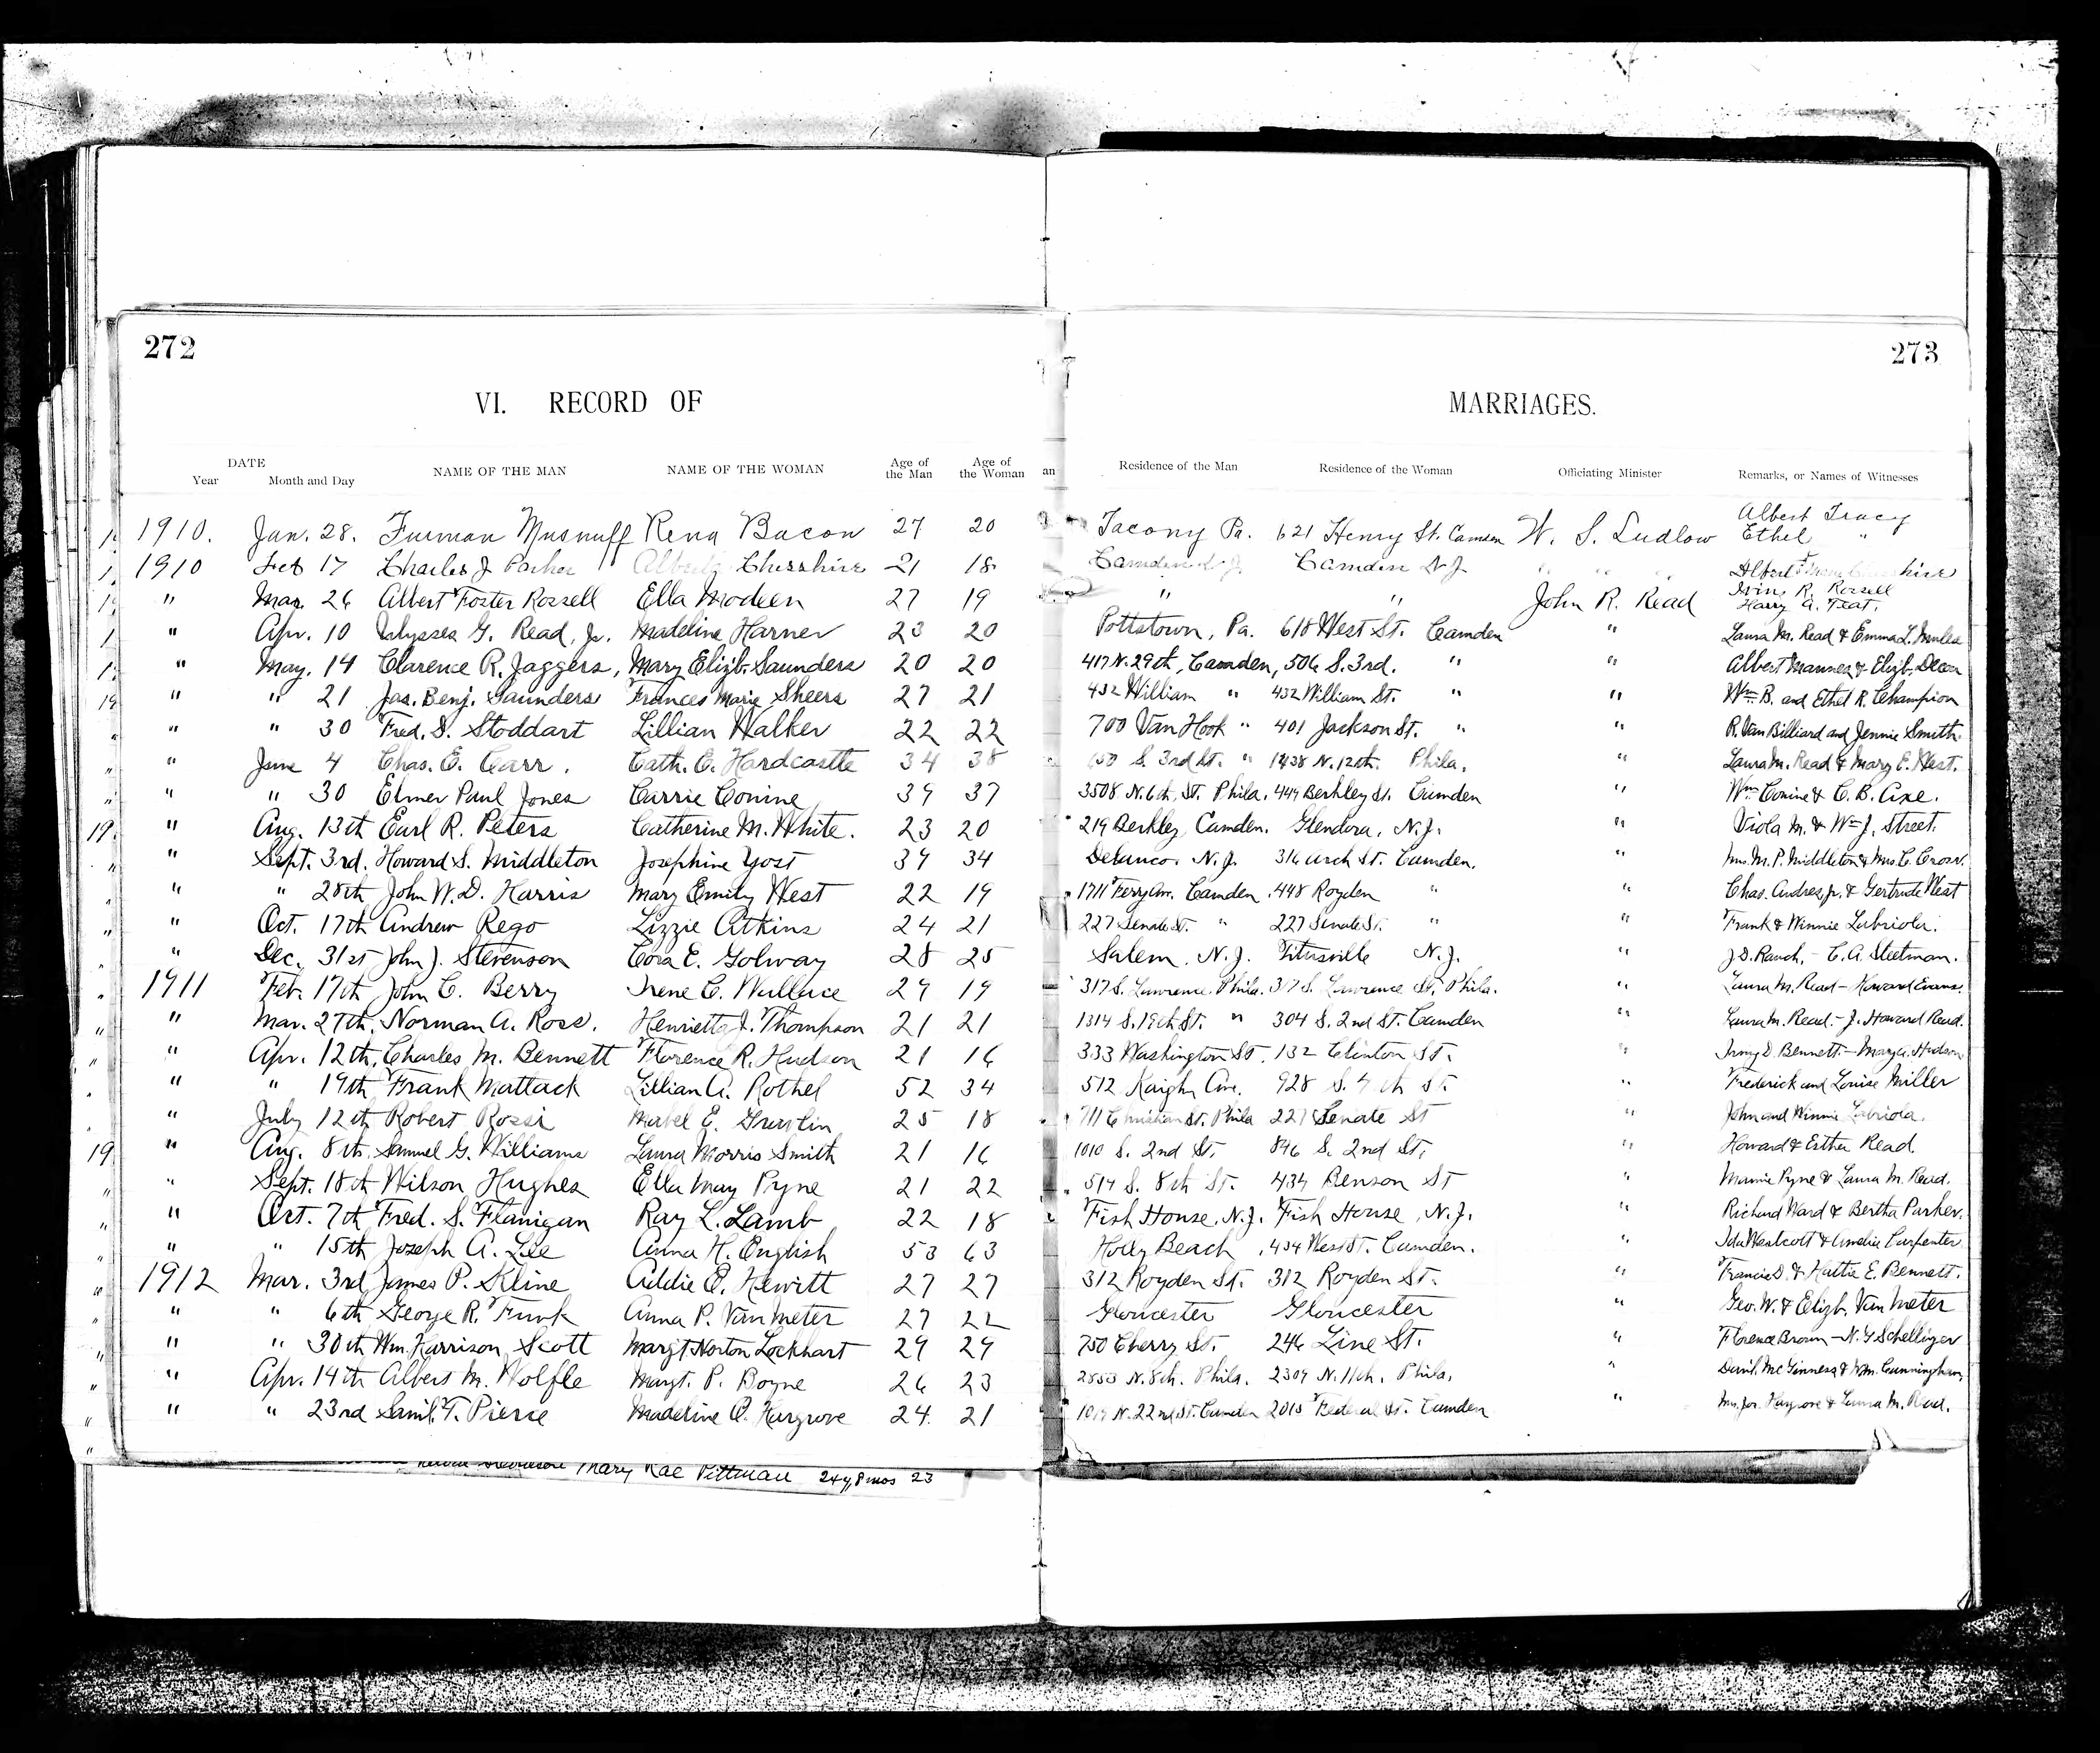 272
273
VI. RECORD OF
MARRIAGES.
DATE
Year Month and Day NAME OF THE MAN NAME OF THE WOMAN Age of the Man Age of the Woman an Residence of the Man Residence of the Woman Officiating Minister Remarks, or Names of Witnesses
1910. Jan. 28. Furman Musnuff Rena Bacon 27 20 Tacony Pa. 621 Henry St. Camden W. S. Ludlow Albert Tracy
Ethel "
1910 Feb 17 Charles J Parker Cheshire 21 18 Camden N.J. Camden N.J. " " " Albert
" Mar. 26 Albert Foster Rossell Ella Modeen 27 19 " " John R. Read Irving R. Rossell
Harry A. Treat.
" Apr. 10 Ulysses G. Read, Jr. Madeline Harner 23 20 Pottstown, Pa. 618 West St. Camden " Laura M. Read & Emma L.
" May. 14 Clarence R. Jaggers, Mary Elizb. Saunders 20 20 417 N. 29th, Camden, 506 S. 3rd. " " Albert Mannes & Elizb.
" " 21 Jas. Benj. Saunders Frances Marie Sheers 27 21 432 William " 432 William St. " " Wm. B. and Ethel R. Champion
" " 30 Fred. S. Stoddart Lillian Walker 22 22 700 Van Hook " 401 Jackson St. " " R. Van Billiard and Jennie Smith.
" June 4 Chas. E. Carr. Cath. C. Hardcastle 34 38 S. 3rd St. " 1438 N. 12th. Phila. " Laura M. Read & Mary E. West.
" " 30 Elmer Paul Jones Carrie Conine 39 37 3508 N. 6th, St. Phila. 449 Berkley St. Camden " Wm Conine & C. B. Axe.
" Aug. 13th Earl R. Peters Catherine M. White. 23 20 219 Berkley Camden. Glendora, N.J. " Viola M. & Wm J. Street.
" Sept. 3rd. Howard S. Middleton Josephine Yost 39 34 Delanco, N.J. 316 Arch St. Camden. " Mrs. M. P. Middleton & Mrs. C. Cross.
" " 28th John W. D. Harris Mary Emily West 22 19 1711 Ferry Av. Camden 448 Royden " " Chas. Andres, Jr. & Gertrude West
" Oct. 17th Andrew Rego Lizzie Atkins 24 21 227 Senate St. " 227 Senate St. " " Frank & Winnie Labriola.
" Dec. 31st John J. Stevenson Cora E. Golway 28 25 Salem, N.J. Titusville N.J. " J. D. Rauch, - C. A. Sleetman.
1911 Feb. 17th John C. Berry Irene C. Wallace 29 19 317 S. Lawrence. Phila. 317 S. Lawrence St. Phila. " Laura M. Read - Howard Evans.
" Mar. 27th. Norman A. Ross. Henrietta J. Thompson 21 21 1314 S. 19th St. " 304 S. 2nd St. Camden " Laura M. Read. - J. Howard Read.
" Apr. 12th, Charles M. Bennett Florence R. Hudson 21 16 333 Washington St. 132 Clinton St. " Irving D. Bennett - Mary A. Hudson
" " 19th Frank Mattack Lillian A. Pothel 52 34 512 Kaighn Ave. 928 S. St. " Frederick and Louise Miller
" July 12th Robert Rossi Mabel E. 25 18 711 Christian St. Phila 221 Senate St " John and Winnie Labriola.
19 " Aug. 8th Samuel G. Williams Laura Morris Smith 21 16 1010 S. 2nd St. 846 S. 2nd St. " Howard & Esther Read.
" Sept. 18th Wilson Hughes Ella May Pyne 21 22 514 S. 8th St. 434 Benson St " Mamie Pyne & Laura M. Read.
" Oct. 7th Fred. S. Flanigan Ray L. Lamb 22 18 Fish House, N.J. Fish House, N.J. " Richard Ward & Bertha Parker.
" " 15th Joseph A. Lee Anna H. English 53 63 Holly Beach 434 West St. Camden. " Ida Westcott & Amelia Carpenter
1912 Mar. 3rd James P. Kline Addie E. Hewitt 27 27 312 Royden St. 312 Royden St. " Francis D. & Hattie E. Bennett.
" " 6th George R. Funk Anna P. Van Meter 27 22 Gloucester Gloucester " Geo. W. & Elizb. Van Meter
" " 30th Wm. Harrison Scott Margt Norton Lockhart 29 29 750 Cherry St. 246 Line St. " Florence Brown - N. Y Schellinger
" Apr. 14th Albert M. Wolfle Margt. P. Boyne 26 23 2853 N. 8th. Phila. 2309 N. 11th. Phila. " McGinness & Wm. Cunningham
" " 23rd Saml. T. Pierce Madeline E. Hargrove 24. 21 1019 N. 22nd St. Camden 2015 Federal St. Camden " Mrs. Jos. Hargrove & Laura M. Read.
Mary Rae Pittman 24y, 8 mos 23